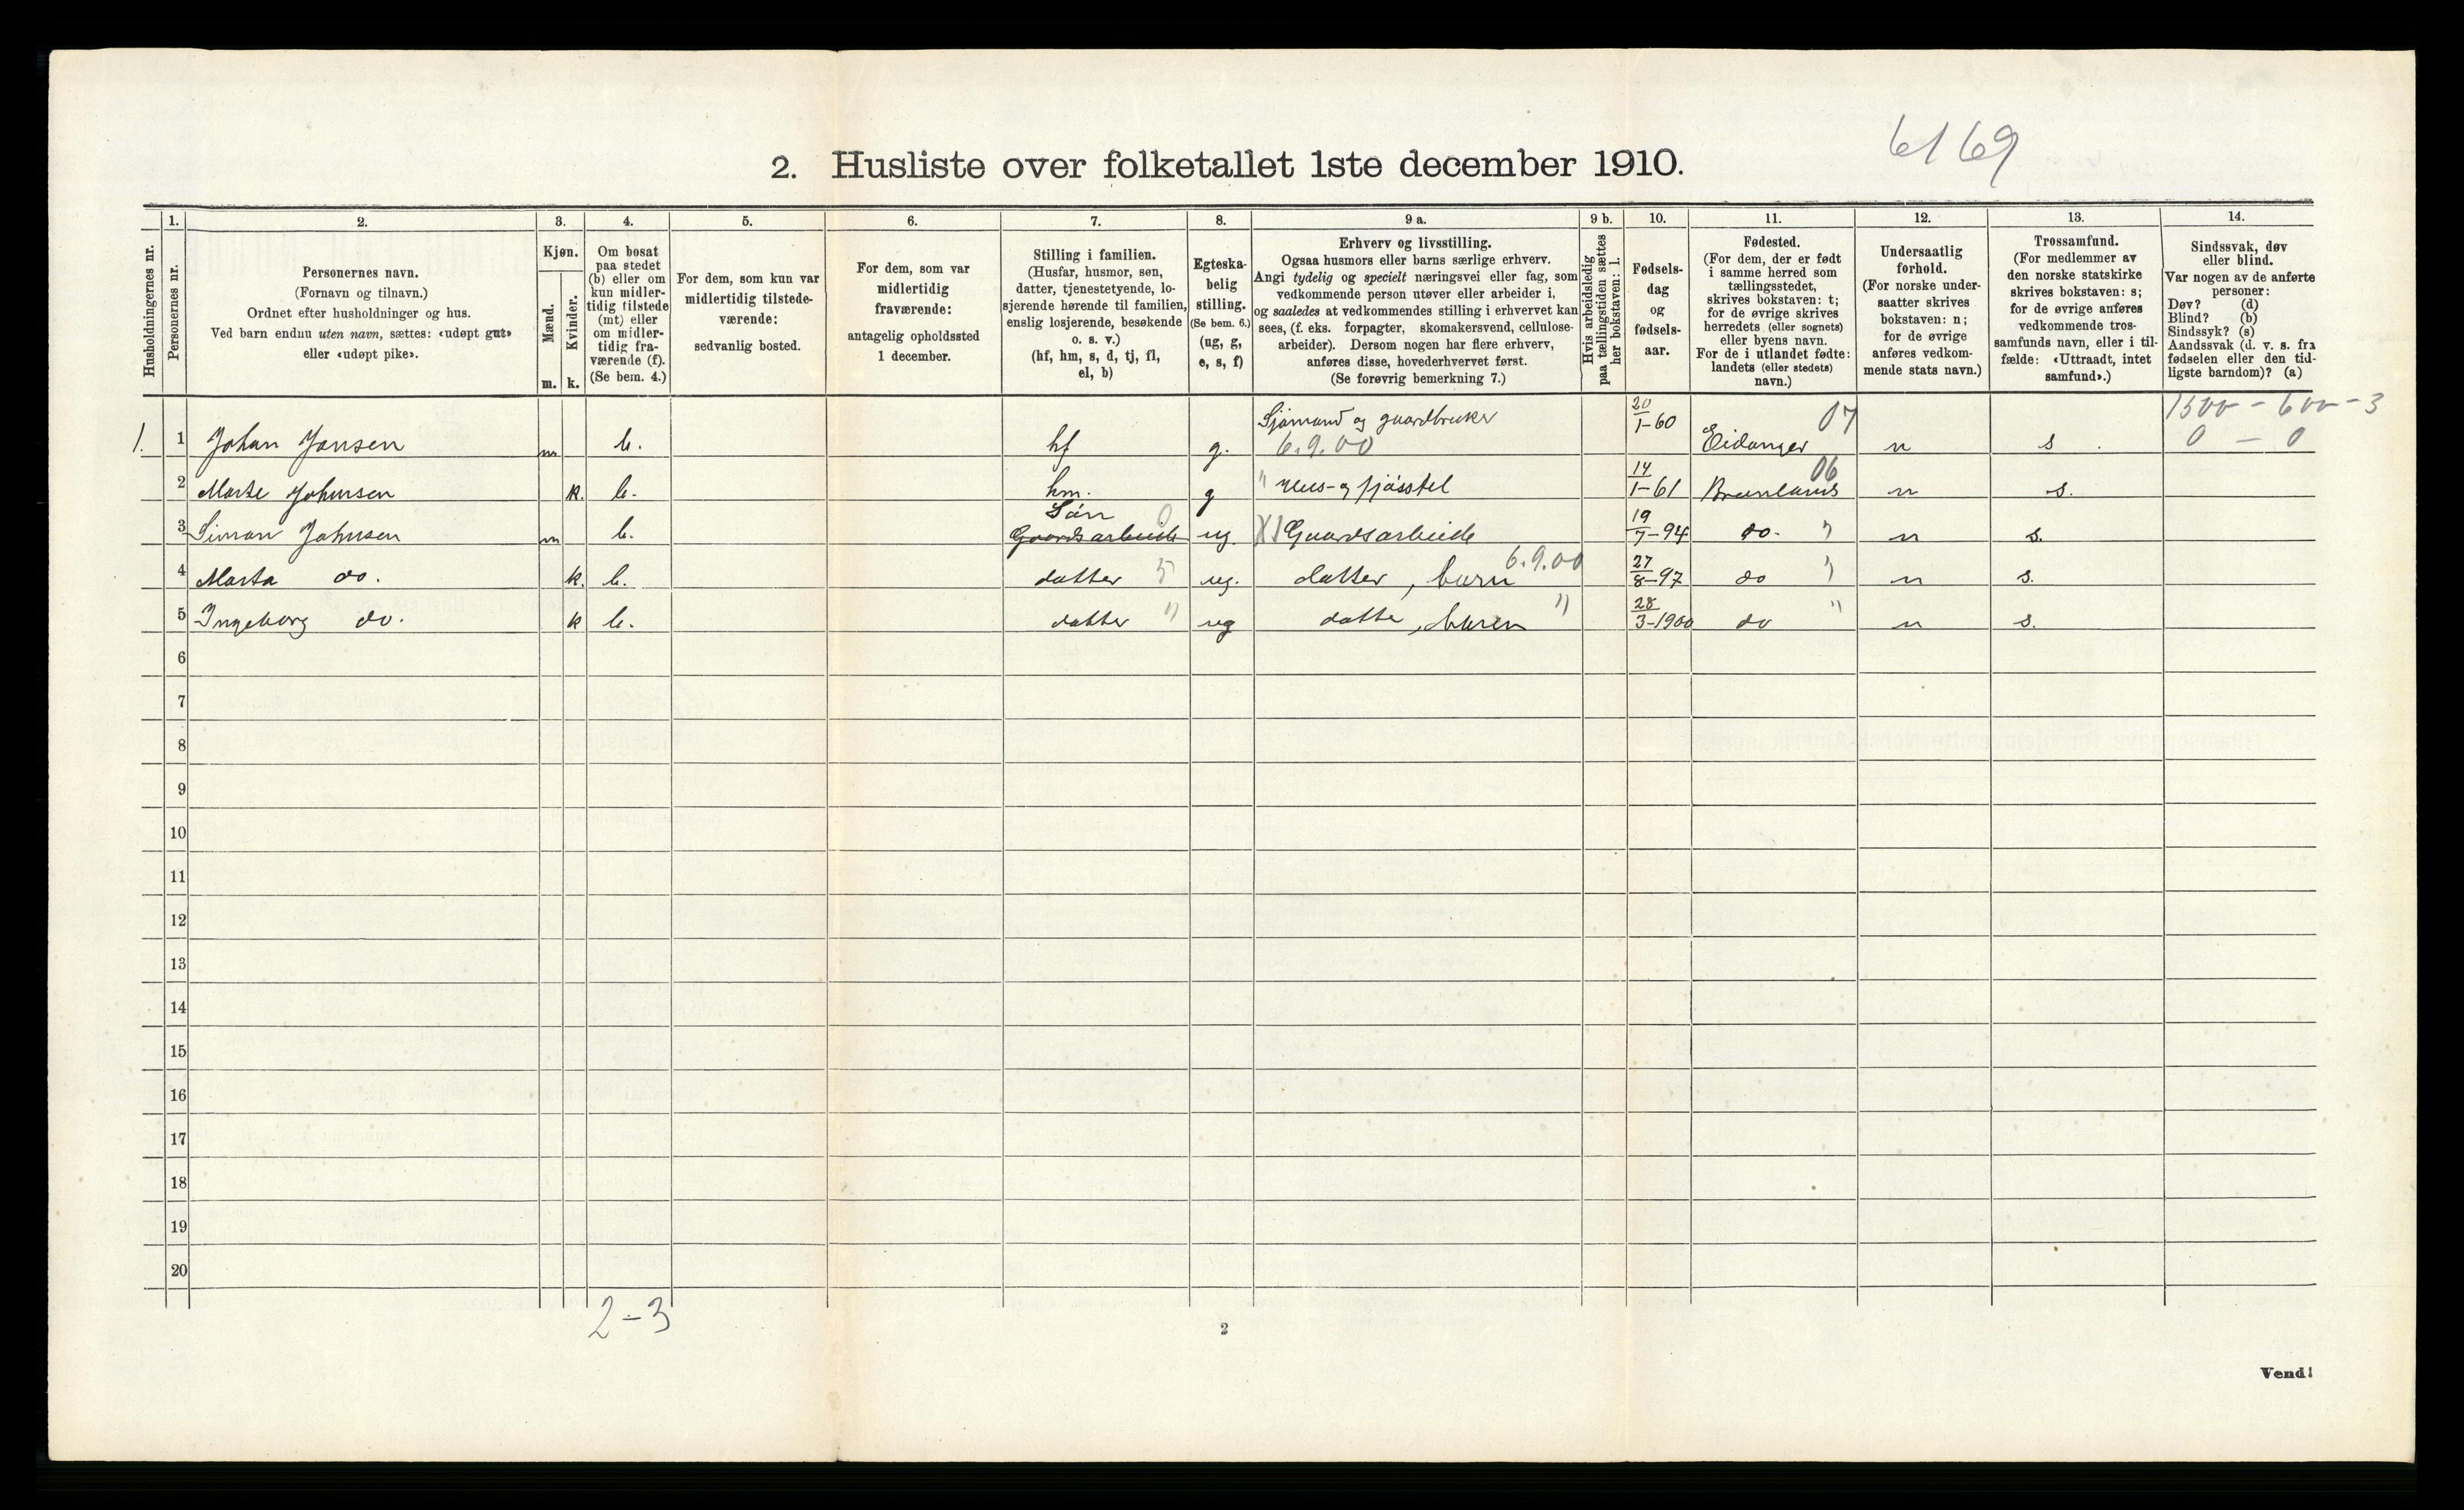 6169
2. Husliste over folketallet 1ste december 1910.
Husholdningernes nr.
1.
Personernes nr.
2.
Personernes navn.
(Fornavn og tilnavn.)
Ordnet efter husholdninger og hus.
Ved barn endnu uten navn, sættes: «udøpt gut»
eller «udøpt pike».
3.
Kjøn.
Mænd.
Kvinder.
m. k.
4.
Om bosat
paa stedet
(b) eller om
kun midler-
tidig tilstede
(mt) eller
om midler-
tidig fra-
værende (f).
(Se bem. 4.)
5.
For dem, som kun var
midlertidig tilstede-
værende:
sedvanlig bosted.
6.
For dem, som var
midlertidig
fraværende:
antagelig opholdssted
1 december.
7.
Stilling i familien.
(Husfar, husmor, søn,
datter, tjenestetyende, lo-
sjerende hørende til familien,
enslig losjerende, besøkende
o. s. v.)
(hf, hm, s, d, tj, fl,
el, b)
8.
Egteska-
belig
stilling.
(Se bem. 6.)
(ug, g,
e, s, f)
9 a.
Erhverv og livsstilling.
Ogsaa husmors eller barns særlige erhverv.
Angi tydelig og specielt næringsvei eller fag, som
vedkommende person utøver eller arbeider i,
og saaledes at vedkommendes stilling i erhvervet kan
sees, (f. eks. forpagter, skomakersvend, cellulose-
arbeider). Dersom nogen har flere erhverv,
anføres disse, hovederhvervet først.
(Se forøvrig bemerkning 7.)
9 b.
Hvis arbeidsledig
paa tællingstiden sættes
her bokstaven: l.
10.
Fødsels-
dag
og
fødsels-
aar.
11.
Fødested.
(For dem, der er født
i samme herred som
tællingsstedet,
skrives bokstaven: t;
for de øvrige skrives
herredets (eller sognets)
eller byens navn.
For de i utlandet fødte:
landets (eller stedets)
navn.)
12.
Undersaatlig
forhold.
(For norske under-
saatter skrives
bokstaven: n;
for de øvrige
anføres vedkom-
mende stats navn.)
13.
Trossamfund.
(For medlemmer av
den norske statskirke
skrives bokstaven: s;
for de øvrige anføres
vedkommende tros-
samfunds navn, eller i til-
fælde: «Uttraadt, intet
samfund».)
14.
Sindssvak, døv
eller blind.
Var nogen av de anførte
personer:
Døv? (d)
Blind? (b)
Sindssyk? (s)
Aandssvak (d. v. s. fra
fødselen eller den tid-
ligste barndom)? (a)
1500 - 600 - 3
Sjømand og gaardbruker 20/1-60 07
1. 1 Johan Jansen m b. hf g. 6.9.00 Eidanger n s 0 - 0
2 Marte Johnsen k. b. hm. g " Hus- og fjøsstel 14/1-61 06 n s.
Søn 0
3 Simon Johnsen m b. Gaardsarbeide ug. Gaardsarbeide 19/7-94 do. " n s.
4 Marta do. k. b. datter 5 ug. datter, barn 6.9.00 27/8-97 do " n s.
5 Ingeborg do. k b. datter " ug datte, baren " 28/3-1900 do " n s.
6
7
8
9
10
11
12
13
14
15
16
17
18
19
20
2-3
2
Vend!